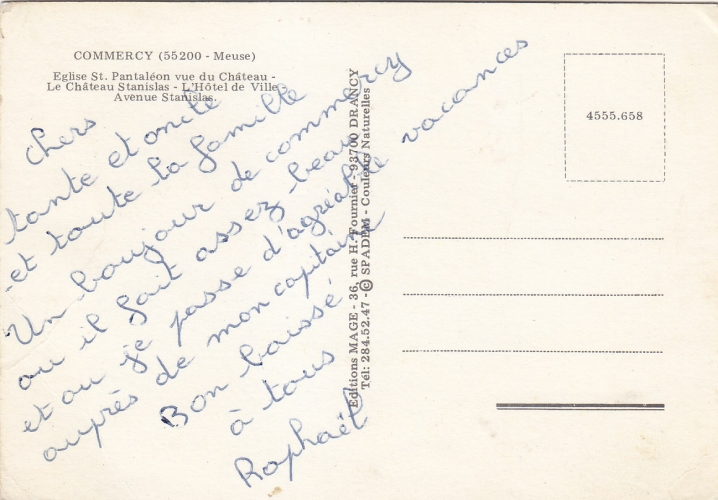 COMMERCY (55200 - Meuse)
Eglise St. Pantaléon vue du Château -
Le Château Stanislas - L'Hôtel de Ville
Avenue Stanislas.
chers
tante et oncle
et toute la famille
Un boujour de commercy
ou il fait assez beau
et ou je passe d'agréable vacances
auprès de mon capitaine
Bon baissé
à tous
Raphaël
Editions MAGE - 36, rue H. Fournier - 93700 DRANCY
Tél: 284.52.47 - © SPADEM - Couleurs Naturelles
4555.658